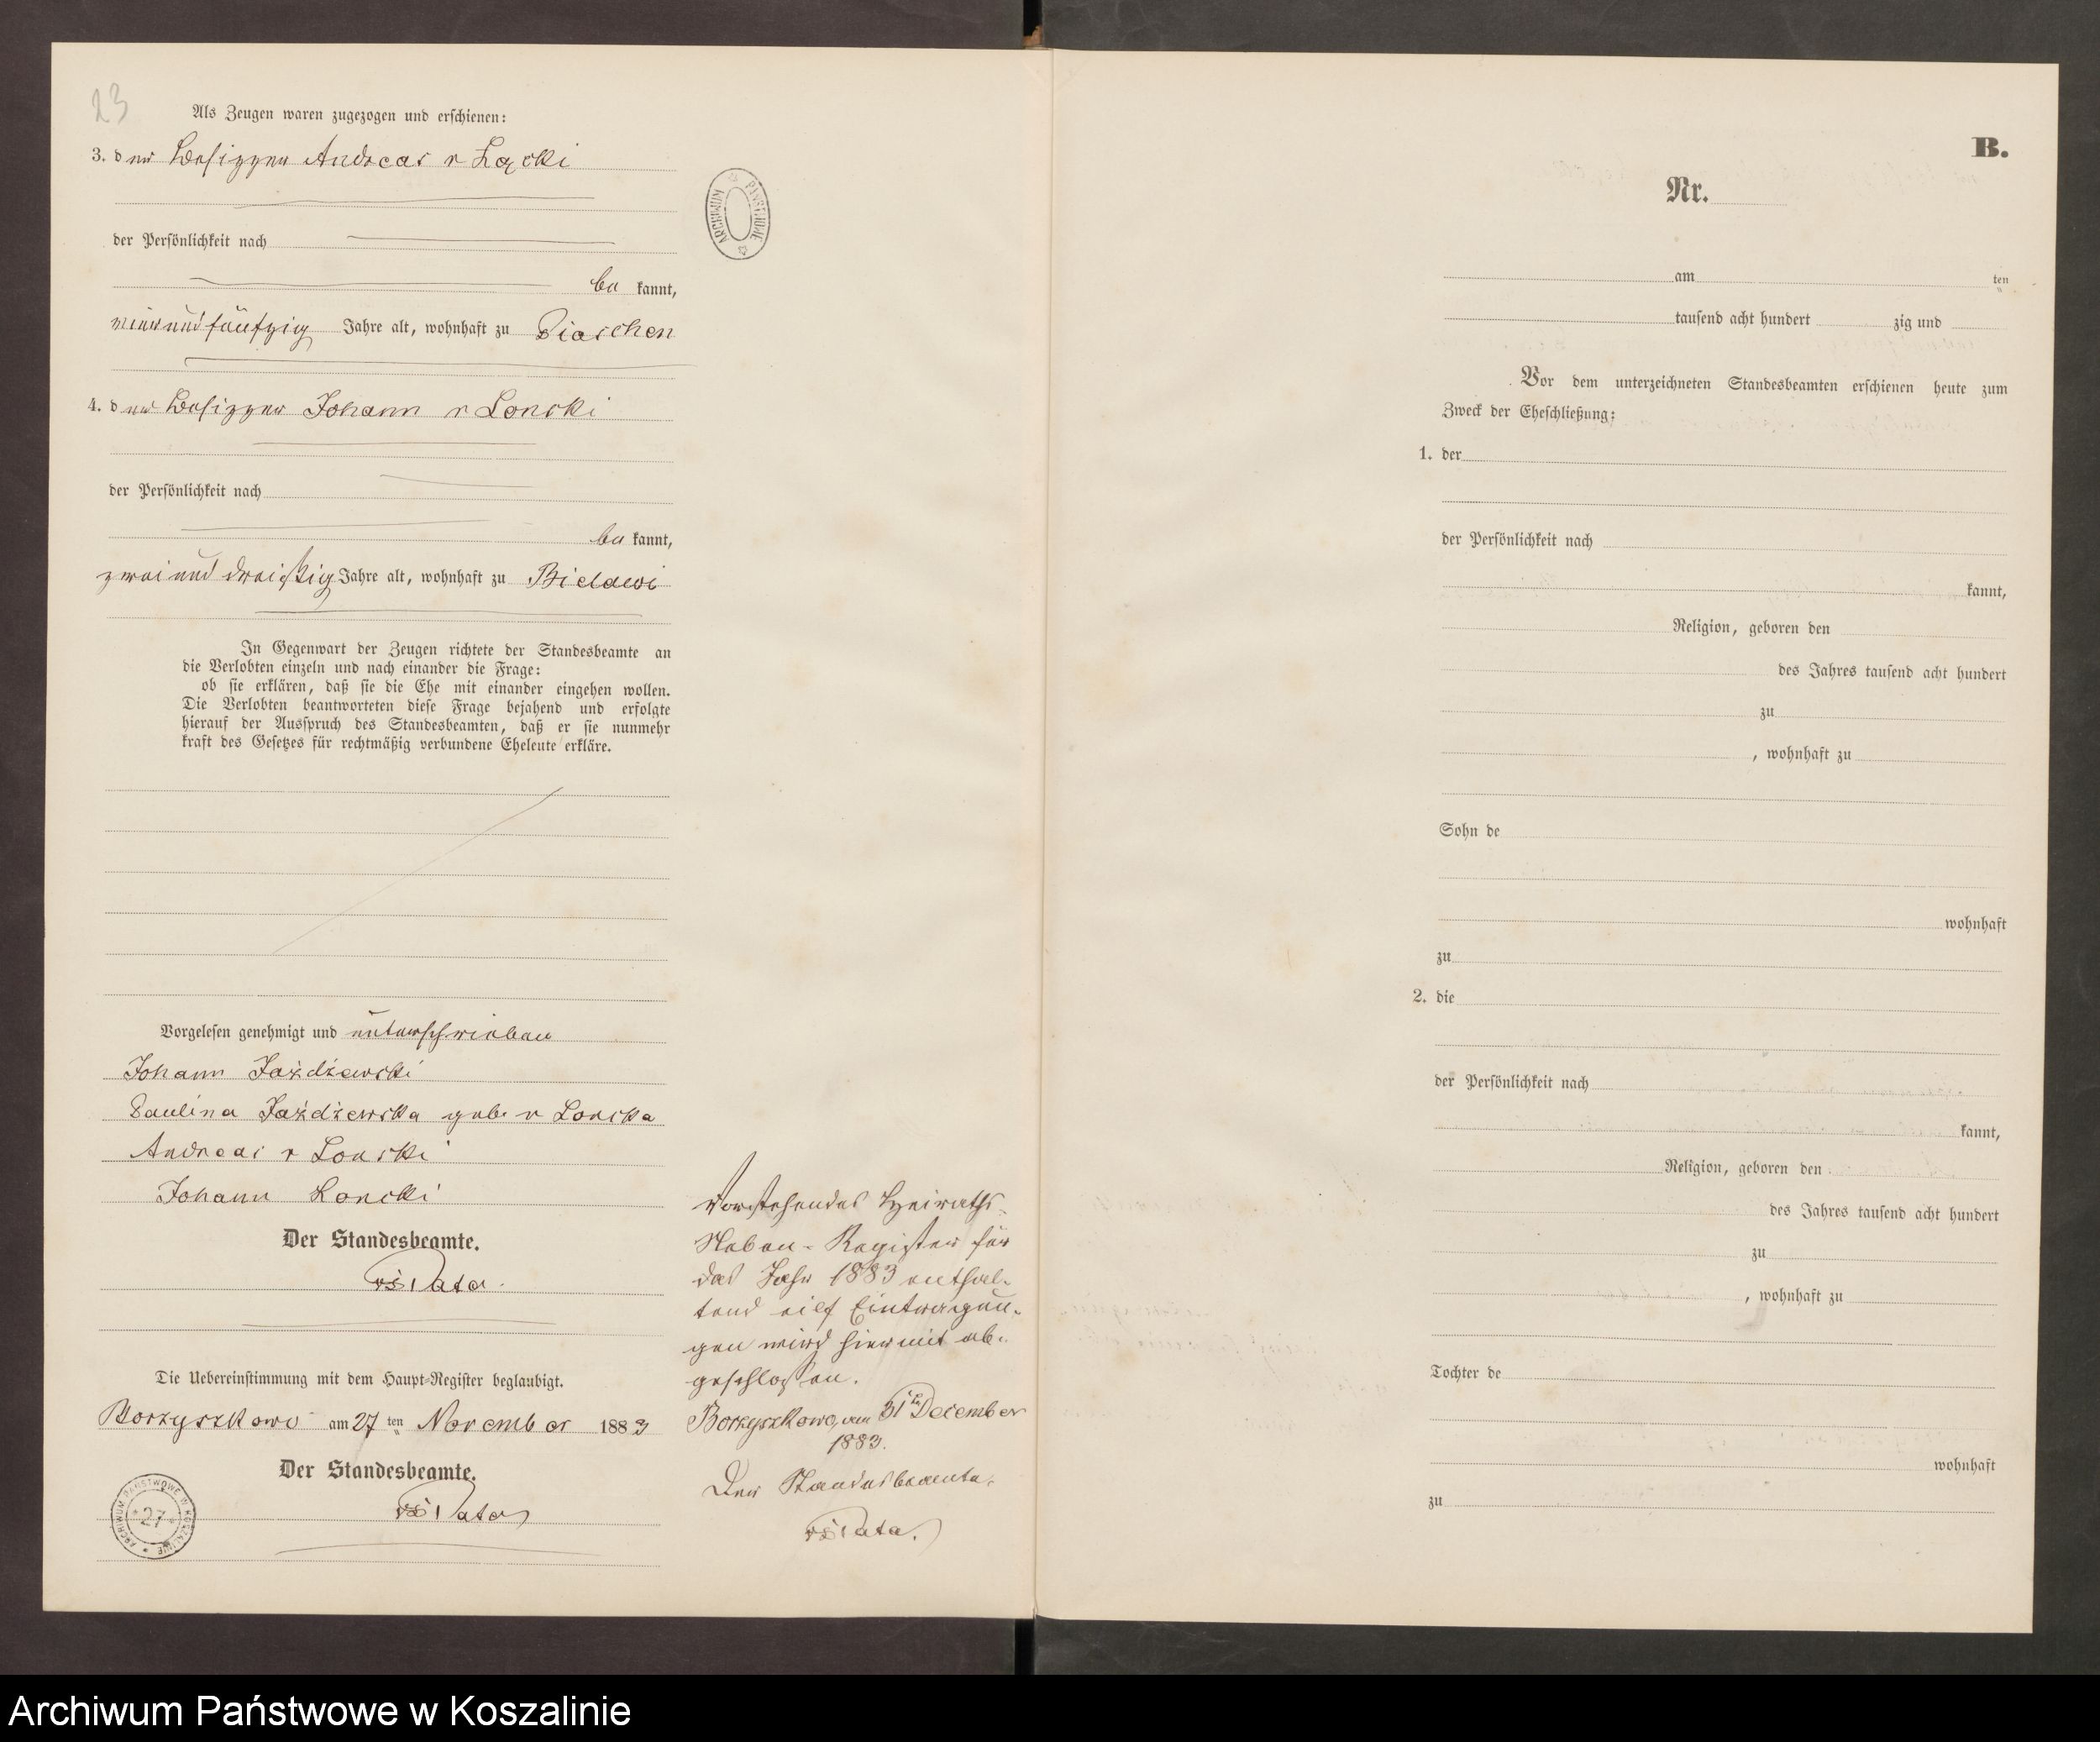 23
Als Zeugen waren zugezogen und erschienen:
3. der Besitzer Andreas v Łącki
der Persönlichkeit nach
be kannt,
vierundfünfzig Jahre alt, wohnhaft zu Piaschen
4. der Besitzer Johann v Loncki
der Persönlichkeit nach
be kannt,
zweiund dreißig Jahre alt, wohnhaft zu Bielawi
In Gegenwart der Zeugen richtete der Standesbeamte an
die Verlobten einzeln und nach einander die Frage:
ob sie erklären, daß sie die Ehe mit einander eingehen wollen.
Die Verlobten beantworteten diese Frage bejahend und erfolgte
hierauf der Ausspruch des Standesbeamten, daß er sie nunmehr
kraft des Gesetzes für rechtmäßig verbundene Eheleute erkläre.
Vorgelesen genehmigt und unterschrieben
Johann Jażdżewski
Paulina Jażdżewska geb. v Loncka
Andreas v Loncki
Johann Loncki
Der Standesbeamte.
Die Uebereinstimmung mit dem Haupt-Register beglaubigt.
Borzyszkowo am 27 ten November 1883
Der Standesbeamte.
ARCHIWUM PAŃSTWOWE W KOSZALINIE
27
ARCHIWUM PAŃSTWOWE
Vorstehendes Heiraths-
Neben-Register für
das Jahr 1883 enthal-
tend eilf Eintragun-
gen wird hiermit ab-
geschlossen.
Borzyszkowo, am 31ten December
1883.
Der Standesbeamte.
B.
Nr.
am ten
tausend acht hundert zig und
Vor dem unterzeichneten Standesbeamten erschienen heute zum
Zweck der Eheschließung:
1. der
der Persönlichkeit nach
kannt,
Religion, geboren den
des Jahres tausend acht hundert
zu
, wohnhaft zu
Sohn de
wohnhaft
zu
2. die
der Persönlichkeit nach
kannt,
Religion, geboren den
des Jahres tausend acht hundert
zu
, wohnhaft zu
Tochter de
wohnhaft
zu
Archiwum Państwowe w Koszalinie